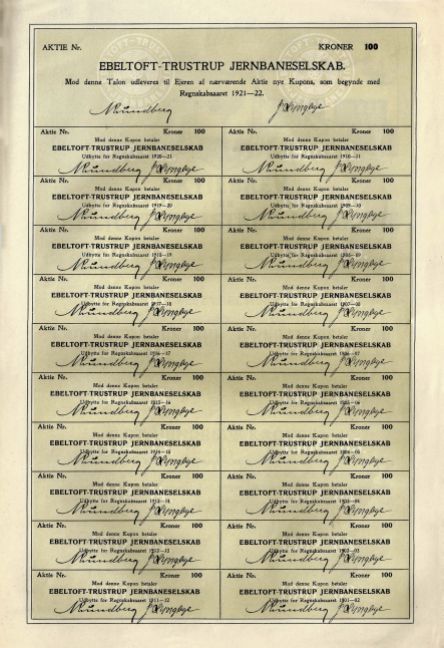 AKTIE Nr. KRONER 100
EBELTOFT-TRUSTRUP JERNBANESELSKAB.
Mod denne Talon udleveres til Ejeren af nærværende Aktie nye Kupons, som begynde med
Regnskabsaaret 1921—22.
Aktie Nr. Kroner 100
Mod denne Kupon betaler
EBELTOFT-TRUSTRUP JERNBANESELSKAB
Udbytte for Regnskabsaaret 1920—21
Aktie Nr. Kroner 100
Mod denne Kupon betaler
EBELTOFT-TRUSTRUP JERNBANESELSKAB
Udbytte for Regnskabsaaret 1910—11
Aktie Nr. Kroner 100
Mod denne Kupon betaler
EBELTOFT-TRUSTRUP JERNBANESELSKAB
Udbytte for Regnskabsaaret 1919—20
Aktie Nr. Kroner 100
Mod denne Kupon betaler
EBELTOFT-TRUSTRUP JERNBANESELSKAB
Udbytte for Regnskabsaaret 1909—10
Aktie Nr. Kroner 100
Mod denne Kupon betaler
EBELTOFT-TRUSTRUP JERNBANESELSKAB
Udbytte for Regnskabsaaret 1918—19
Aktie Nr. Kroner 100
Mod denne Kupon betaler
EBELTOFT-TRUSTRUP JERNBANESELSKAB
Udbytte for Regnskabsaaret 1908—09
Aktie Nr. Kroner 100
Mod denne Kupon betaler
EBELTOFT-TRUSTRUP JERNBANESELSKAB
Udbytte for Regnskabsaaret 1917—18
Aktie Nr. Kroner 100
Mod denne Kupon betaler
EBELTOFT-TRUSTRUP JERNBANESELSKAB
Udbytte for Regnskabsaaret 1907—08
Aktie Nr. Kroner 100
Mod denne Kupon betaler
EBELTOFT-TRUSTRUP JERNBANESELSKAB
Udbytte for Regnskabsaaret 1916—17
Aktie Nr. Kroner 100
Mod denne Kupon betaler
EBELTOFT-TRUSTRUP JERNBANESELSKAB
Udbytte for Regnskabsaaret 1906—07
Aktie Nr. Kroner 100
Mod denne Kupon betaler
EBELTOFT-TRUSTRUP JERNBANESELSKAB
Udbytte for Regnskabsaaret 1915—16
Aktie Nr. Kroner 100
Mod denne Kupon betaler
EBELTOFT-TRUSTRUP JERNBANESELSKAB
Udbytte for Regnskabsaaret 1905—06
Aktie Nr. Kroner 100
Mod denne Kupon betaler
EBELTOFT-TRUSTRUP JERNBANESELSKAB
Udbytte for Regnskabsaaret 1914—15
Aktie Nr. Kroner 100
Mod denne Kupon betaler
EBELTOFT-TRUSTRUP JERNBANESELSKAB
Udbytte for Regnskabsaaret 1904—05
Aktie Nr. Kroner 100
Mod denne Kupon betaler
EBELTOFT-TRUSTRUP JERNBANESELSKAB
Udbytte for Regnskabsaaret
Aktie Nr. Kroner 100
Mod denne Kupon betaler
EBELTOFT-TRUSTRUP JERNBANESELSKAB
Udbytte for Regnskabsaaret 1903—04
Aktie Nr. Kroner 100
Mod denne Kupon betaler
EBELTOFT-TRUSTRUP JERNBANESELSKAB
Udbytte for Regnskabsaaret
Aktie Nr. Kroner 100
Mod denne Kupon betaler
EBELTOFT-TRUSTRUP JERNBANESELSKAB
Udbytte for Regnskabsaaret 1902—03
Aktie Nr. Kroner 100
Mod denne Kupon betaler
EBELTOFT-TRUSTRUP JERNBANESELSKAB
Udbytte for Regnskabsaaret 1911—12
Aktie Nr. Kroner 100
Mod denne Kupon betaler
EBELTOFT-TRUSTRUP JERNBANESELSKAB
Udbytte for Regnskabsaaret 1901—02